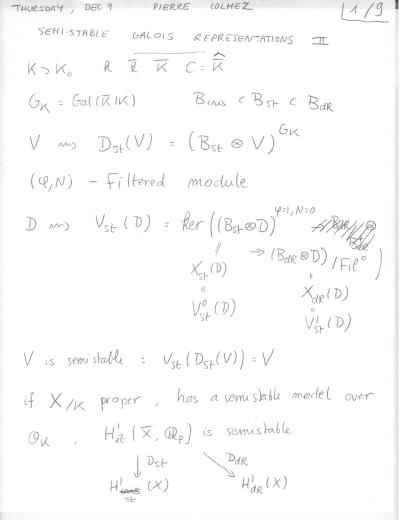 THURSDAY, DEC 9 PIERRE COLMEZ 1/9
SEMI-STABLE GALOIS REPRESENTATIONS II
K ⊃ K₀ k k̄ K̄ C = K̄^
G_K = Gal(K̄/K) B_cris ⊂ B_st ⊂ B_dR
V ⟿ D_st(V) = (B_st ⊗ V)^{G_K}
(φ,N) - Filtered module
D ⟿ V_st(D) = ker((B_st⊗D)^{φ=1, N=0}
→ (B_dR⊗D)/Fil⁰)
X_st(D) X_dR(D)
V⁰_st(D) V¹_st(D)
V is semistable : V_st(D_st(V)) = V
if X/K proper, has a semistable model over
O_K, Hⁱ_ét(X̄, Q_p) is semistable
↓ D_st ↘ D_dR
Hⁱ_st(X) Hⁱ_dR(X)